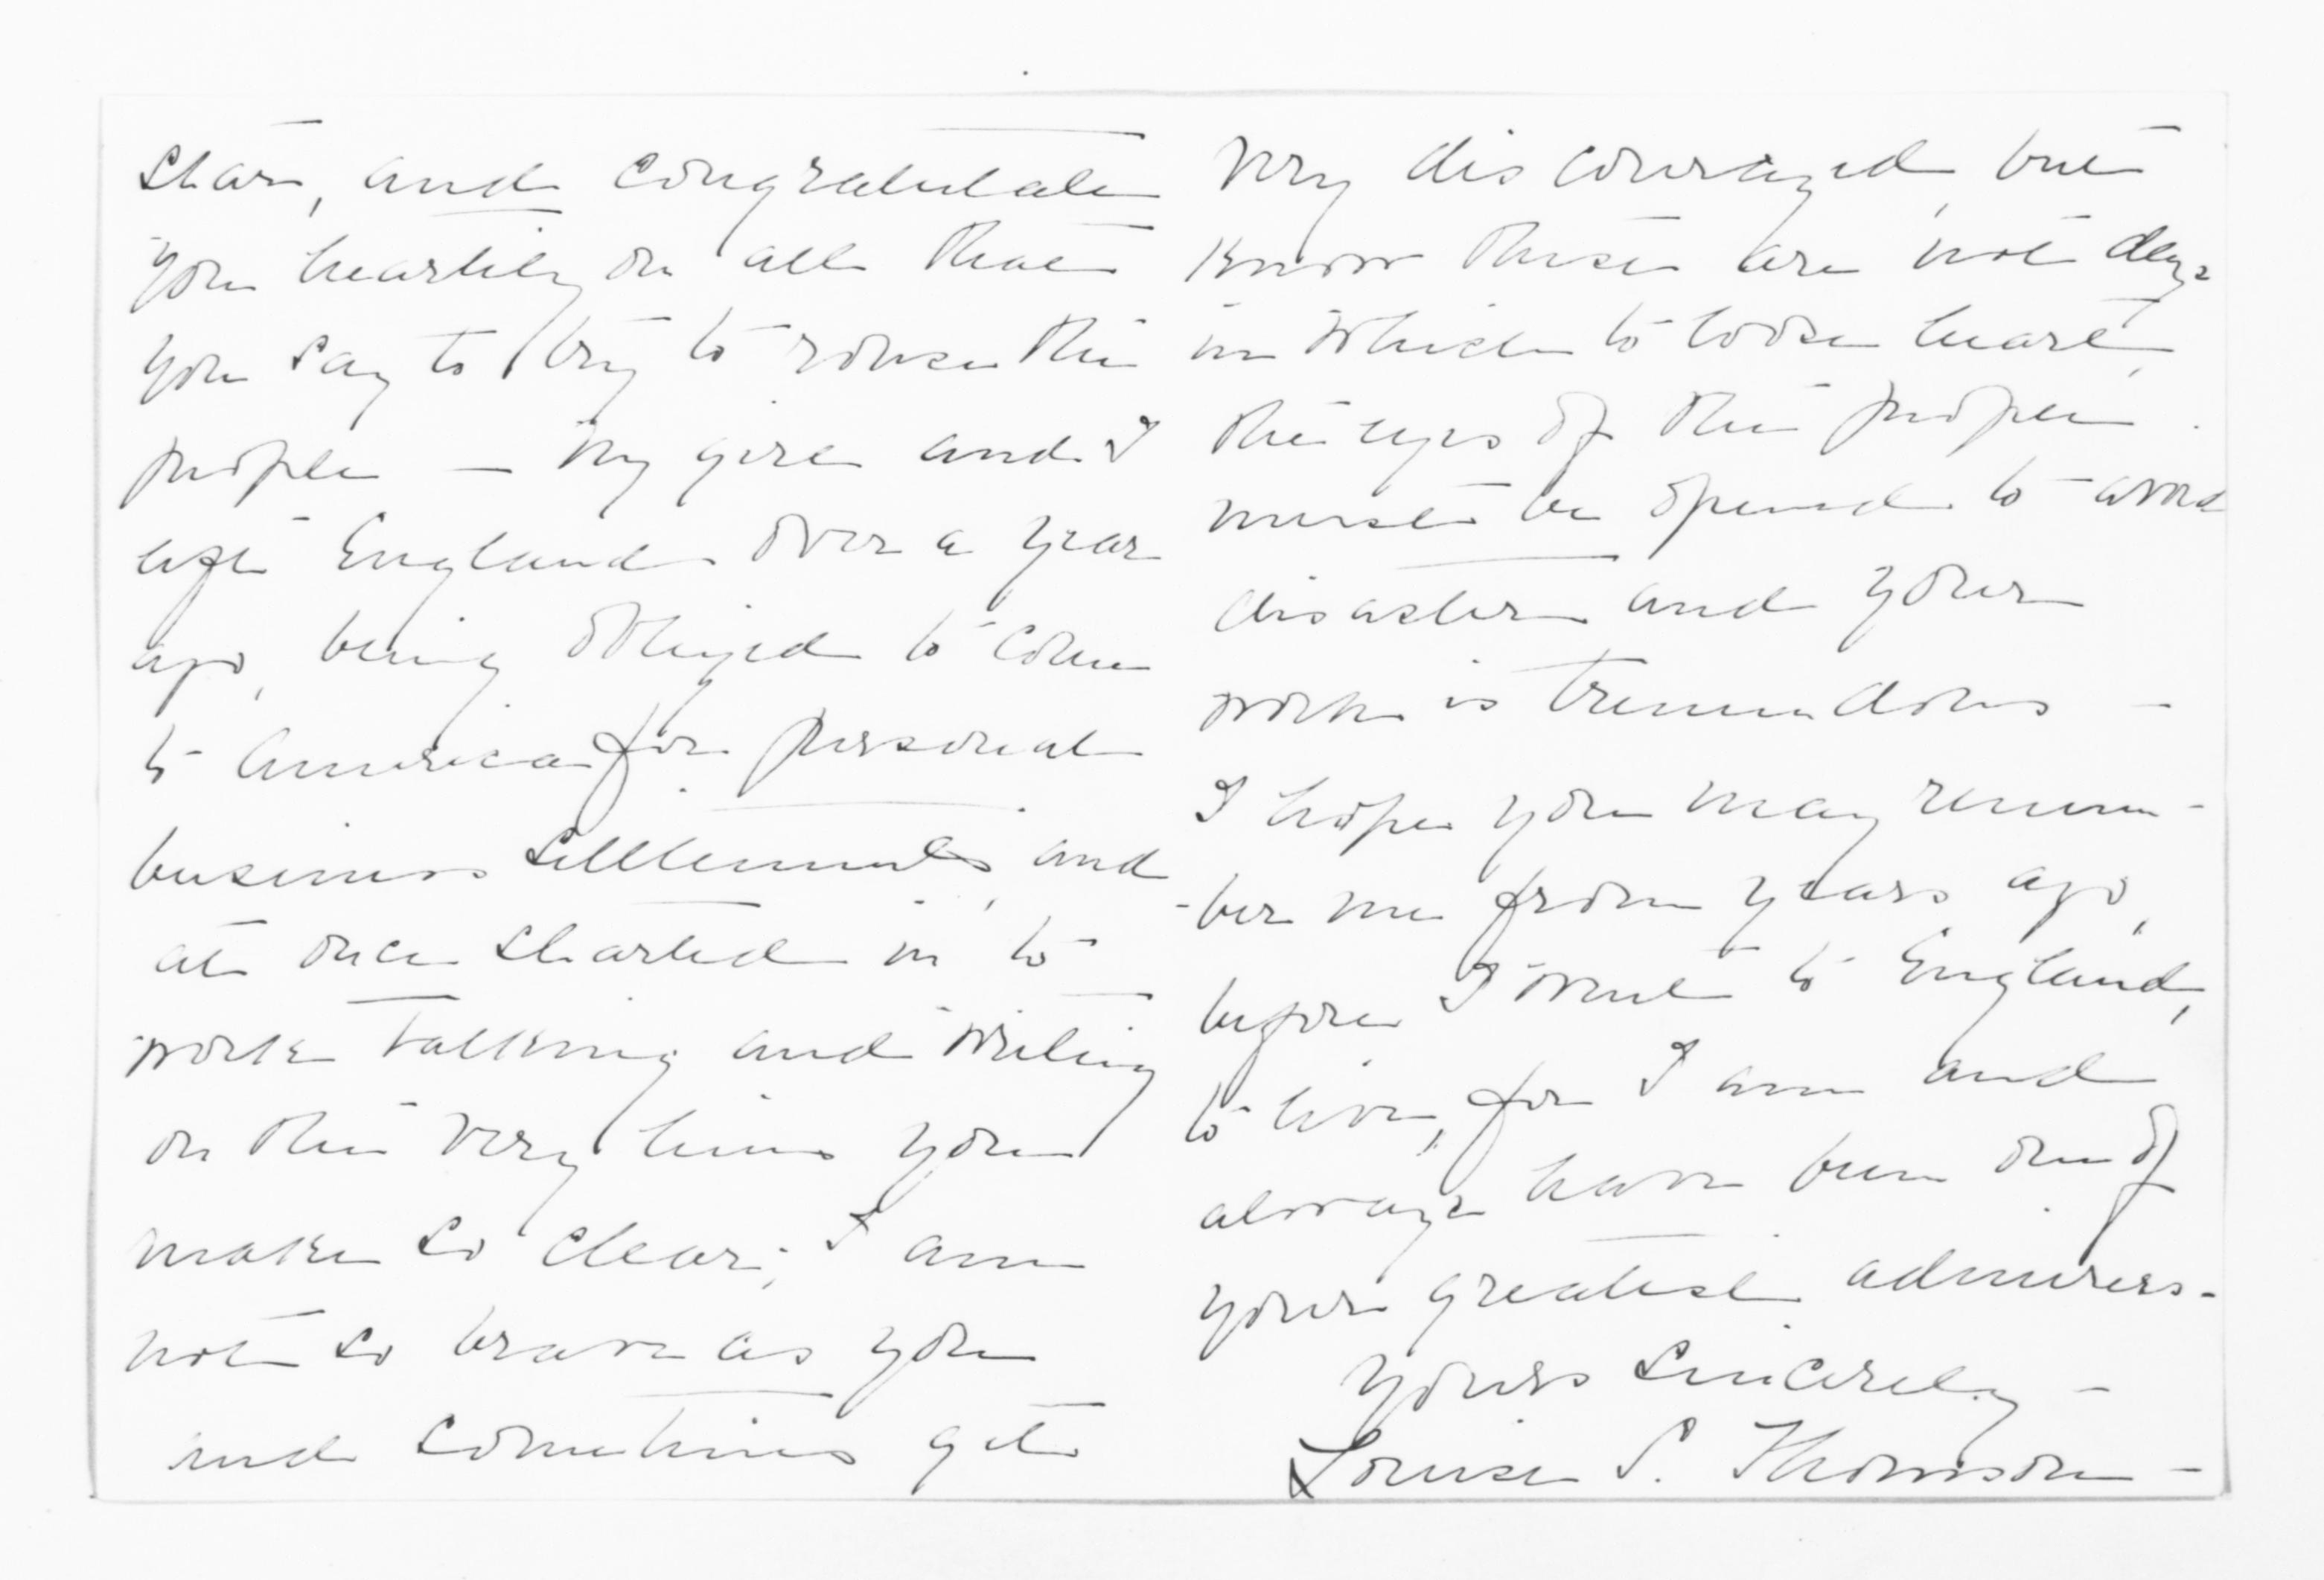 Star, and congratulate
you heartily on all that
you say to try to rouse the
people — My girl and I
left England over a year
ago, being obliged to come
to America for personal
business settlements, and
at once started in to
work talking and writing
on the very lines you
make so clear; I am
not so brave as you
and sometimes get
very discouraged, but
know these are not days
in which to loose heart,
the eyes of the people
must be opened to avoid
disaster and your
work is tremendous —
I hope you may remem-
-ber me from years ago,
before I went to England,
to live, for I am and
always have been one of
your greatest admirers.
Yours sincerely —
Louise S. Thomson —